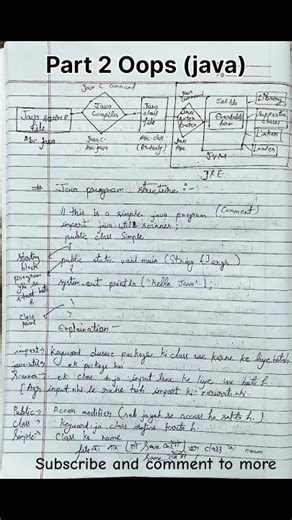 Part 2 Oops (java)
Java C Command
Java source file
Java Compiler
Java class file
Abc.java
Javac-
Abc.java
Abc.class
(Bytecode)
Java
Abc
Library
Supportive classes
Linker
Loader
JVM
JRE
# Java program structure :-
// this is a simple java program (Comment)
import java.util.scanner;
public class Simple
{
public static void main (String []args)
{
system.out.println ("Hello Java");
}
}
starting block
program
class
Explaination -
import → Keyword dusare package ki class use karne ke liye
ek package hai
Scanner → ek class h jo input lene ke liye use hote h.
input nhi le rahe toh import ki zarurat nhi.
Public → Access modifier (sab jagah se access ho sakta h.)
class → Keyword jo class define karta h.
Simple → Class ka name
Subscribe and comment to more